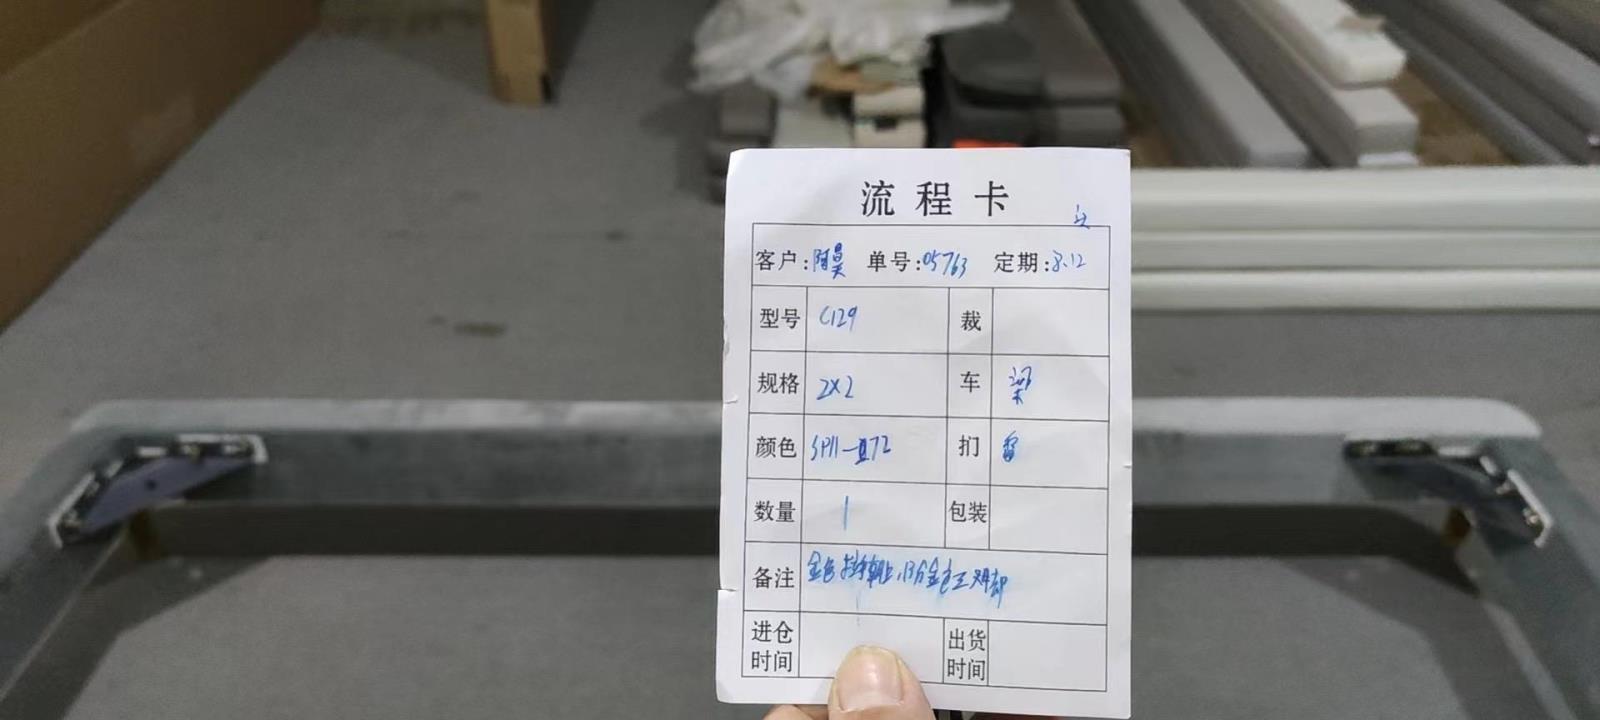 流程卡
客户: 单号:05763 定期:8.12
型号 C129 裁
规格 2X2 车 梁
颜色 SP11-172 扪
数量 1 包装
备注 金色
进仓时间 出货时间